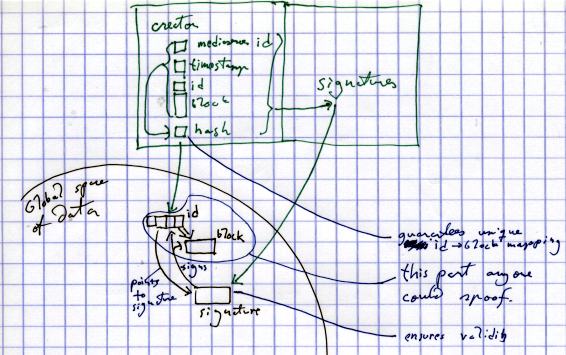 creator
mediaserver id
timestamp
id
block
hash
signatures
Global space
of data
id
block
signs
points
to
signature
signature
guarantees unique
id → block mapping
this part anyone
could spoof.
ensures validity